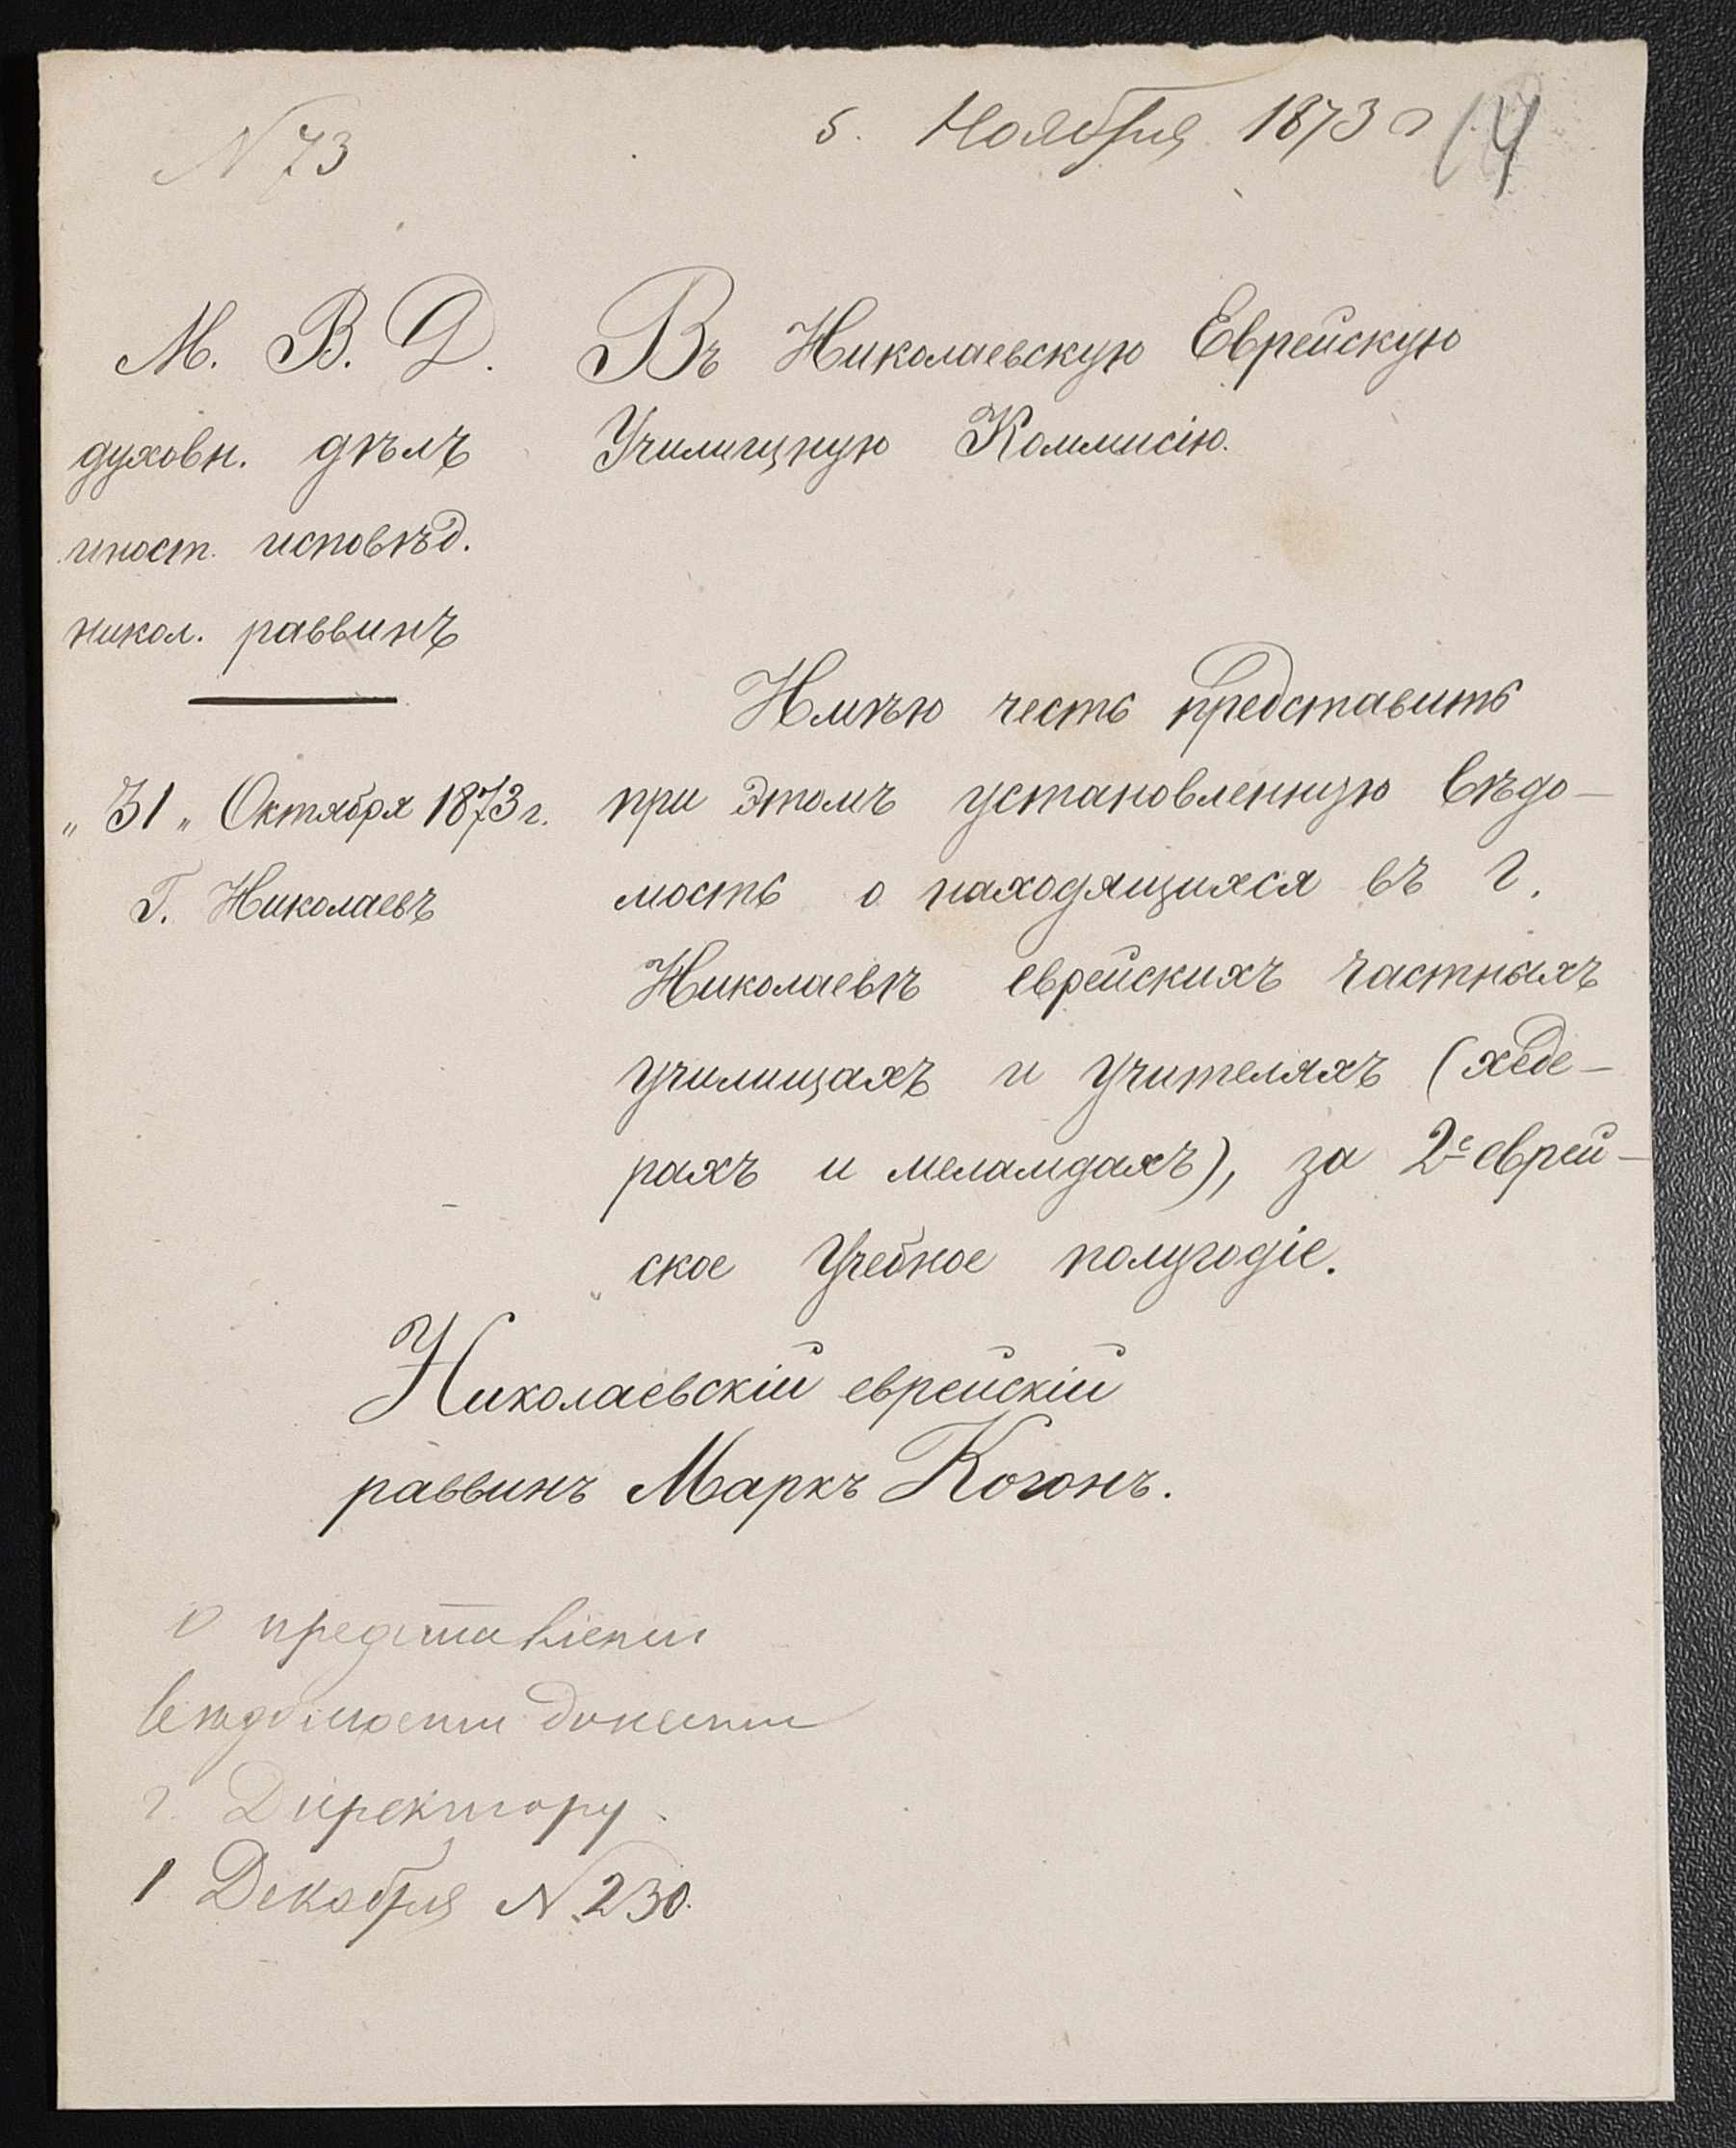 N 73
5. Ноября 1873 г
14
М. В. Д.
духовн. дѣлъ
иност. исповѣд.
никол. раввинъ
„ 31 „ Октября 1873 г.
Г. Николаевъ
Въ Николаевскую Еврейскую
Училищную Коммисію.
Имѣю честь представить
при этомъ установленную вѣдо-
мость о находящихся въ г.
Николаевѣ еврейскихъ частныхъ
училищахъ и учителяхъ (хеде-
рахъ и меламдахъ), за 2е еврей-
ское учебное полугодіе.
Николаевскій еврейскій
раввинъ Маркъ Когонъ.
О представленіи
вѣдомости донести
г. Директору.
1 Декабря N. 230.